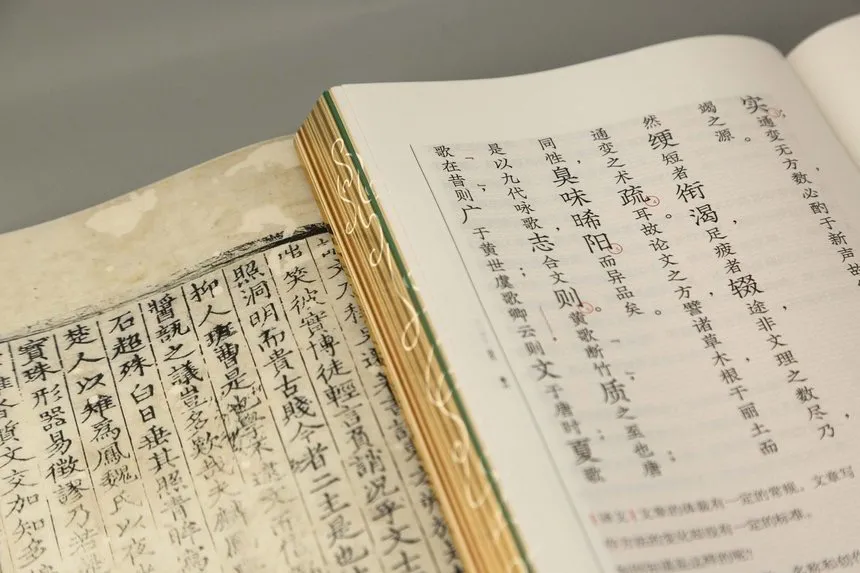 实通变无方，数必酌于新声故
竭之源。
然绠短者衔渴，足疲者辍途，非文理之数尽乃
通变之术疏耳。故论文之方，譬诸草木，根干丽土而
同性，臭味晞阳而异品矣。
是以九代咏歌，志合文则。黄歌断竹，质之至也；唐
歌在昔，则广于黄世；虞歌卿云，则文于唐时；夏歌
[译文]文章的体裁有一定的常规，文章写
但方法的变化却没有一定的标准。
笑彼實博徒輕言負誚況乎文士
照洞明而貴古賤今者二主是也
抑人班曹是也學不逮文而信
醬瓿之議豈多歎哉夫麟鳳
石超殊白日垂其照青眸寫
楚人以雉為鳳魏氏以夜
寶珠形器易徵謬乃若是
質文交加知多